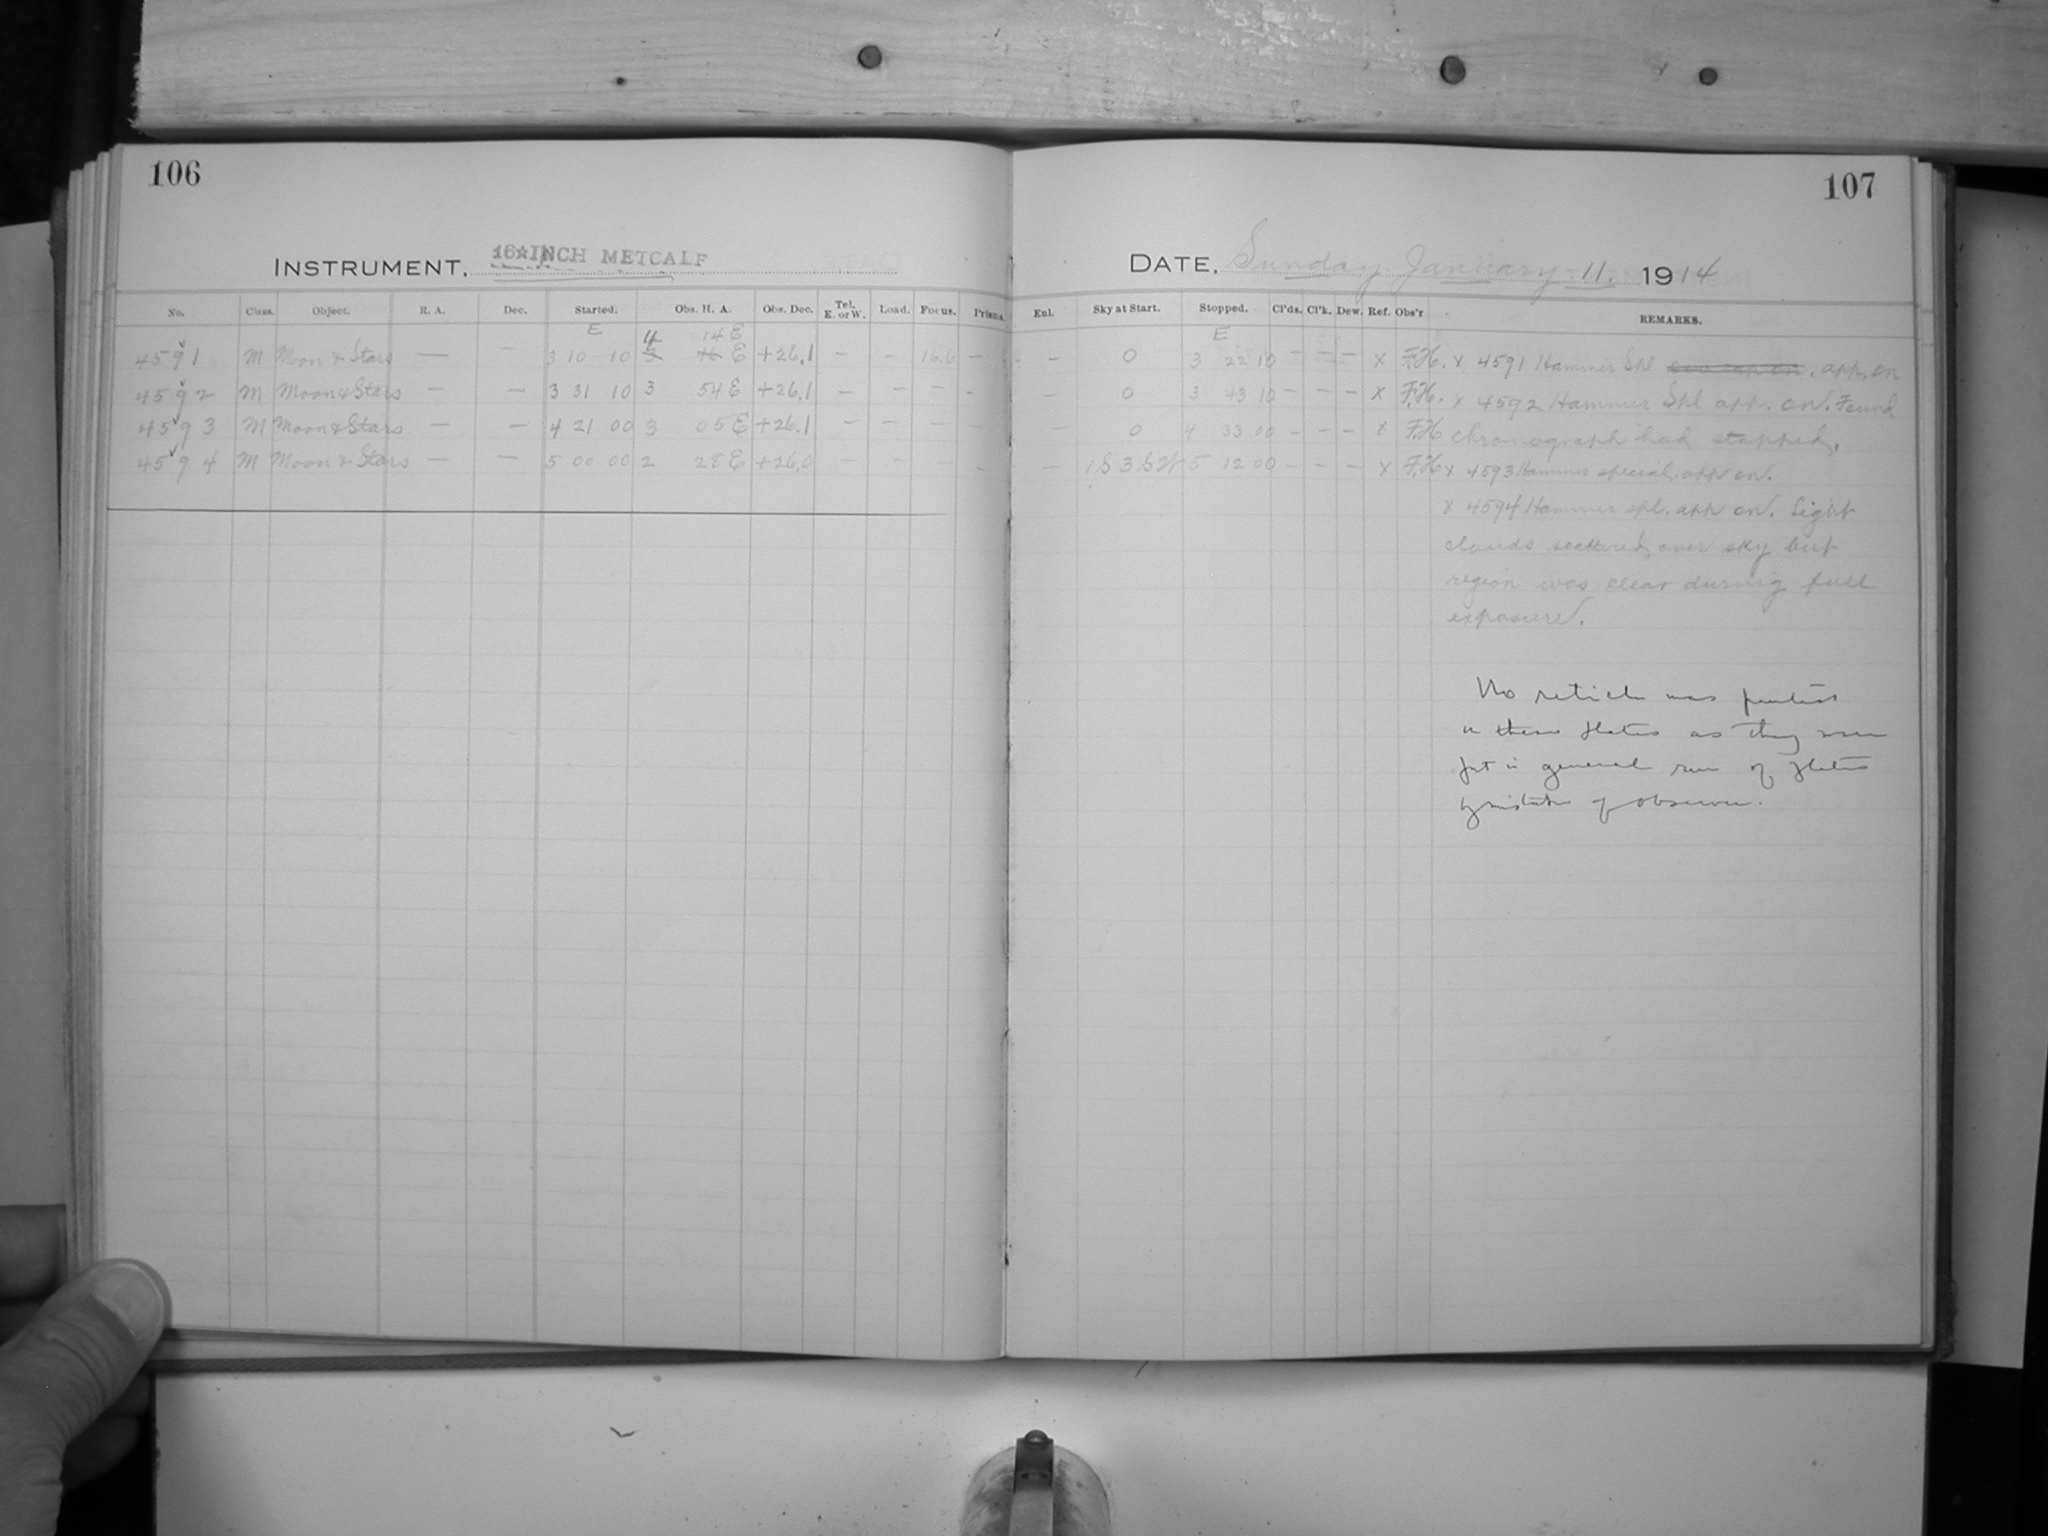 106
107
INSTRUMENT, 16 INCH METCALF
DATE, Sunday January 11. 1914
No. Class. Object. R. A. Dec. Started. Obs. H. A. Obs. Dec. Tel. E. or W. Load. Focus. Prism. Enl. Sky at Start. Stopped. Cl'ds. Cl'k. Dew. Ref. Obs'r REMARKS.
E 4 14 E E
4591 M Moon & Stars — — 3 10 10 3 16 E +26.1 — — 16.6 — — 0 3 22 10 — — — x F.H. x 4591 Hammer Spl. app. on
4592 M Moon & Stars — — 3 31 10 3 54 E +26.1 — — — - — 0 3 43 10 — — — x F.H. x 4592 Hammer Spl app. on. Found
4593 M Moon & Stars — — 4 21 00 3 05 E +26.1 — — — — — 0 4 33 00 — — — x F.H chronograph had stopped.
4594 M Moon & Stars — — 5 00 00 2 28 E +26.0 — — — - — 1 S 3 SW 5 12 00 — — — x F.H x 4593 Hammer special. app on.
x 4594 Hammer spl. app on. Light
clouds scattered over sky but
region was clear during full
exposure.
No reticle was printed
in these plates as they were
put in general run of plates
by mistake of observer.